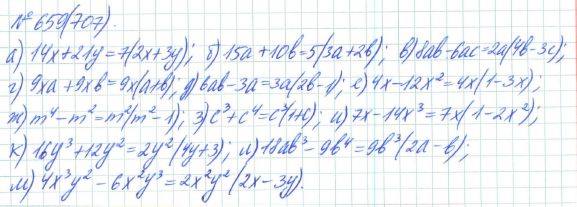 № 659(707).
а) 14x+21y=7(2x+3y); б) 15a+10b=5(3a+2b); в) 8ab-6ac=2a(4b-3c);
г) 9xa+9xb=9x(a+b); д) 6ab-3a=3a(2b-1); е) 4x-12x²=4x(1-3x);
ж) m⁴-m²=m²(m²-1); з) c³+c⁴=c³(1+c); и) 7x-14x³=7x(1-2x²);
к) 16y³+12y²=2y²(4y+3); л) 18ab³-9b⁴=9b³(2a-b);
м) 4x³y²-6x²y³=2x²y²(2x-3y).